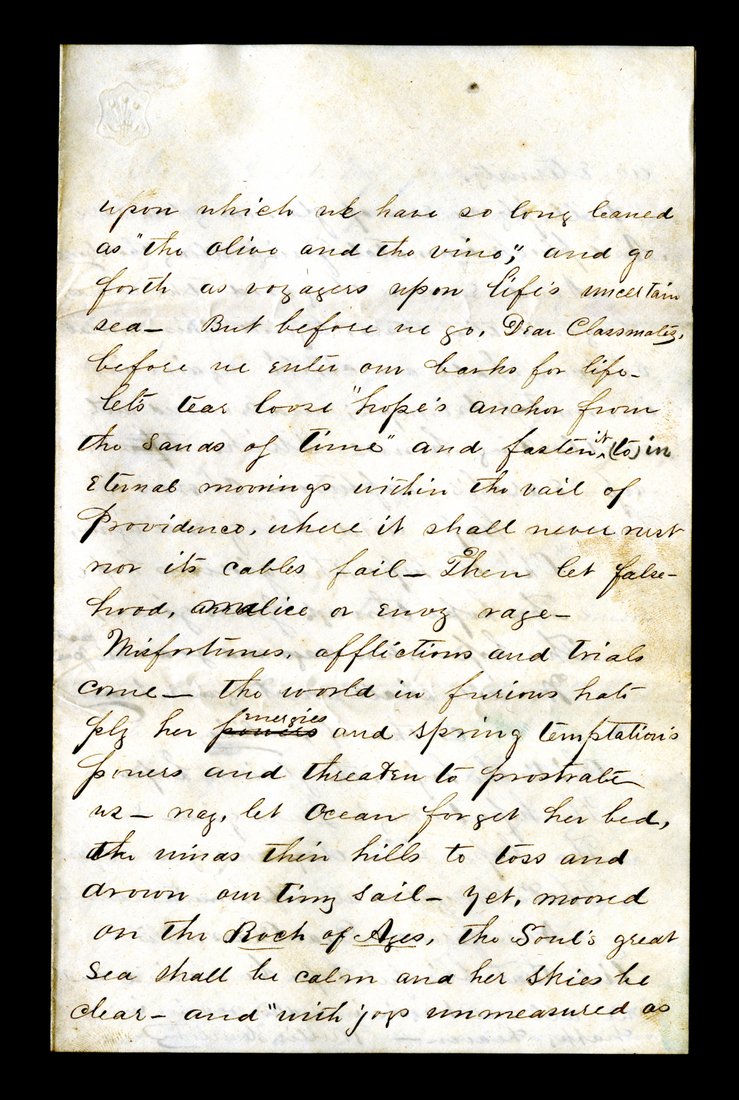 upon which we have so long leaned
as "the olive and the vine", and go
forth as voyagers upon life's uncertain
sea— But before we go, Dear Classmates,
before we enter our barks for life—
let's tear loose "hope's anchor from
the sands of time" and fasten it (to) in
Eternal moorings within the vail of
Providence, where it shall never rust
nor its cables fail— Then let false-
hood, malice or envy rage—
Misfortunes, afflictions and trials
come— the world in furious hate
ply her powers energies and spring temptation's
powers and threaten to prostrate
us— nay, let Ocean forget her bed,
the winds their hills to toss and
drown our tiny sail— yet, moored
on the Rock of Ages, the Soul's great
Sea shall be calm and her skies be
clear— and "with joys unmeasured as